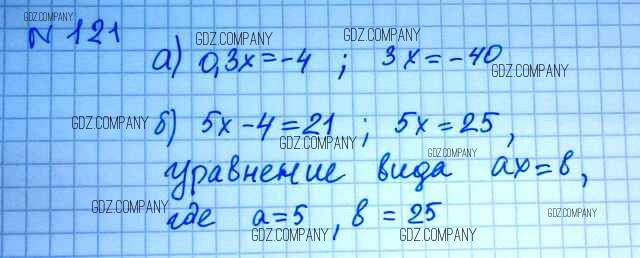 GDZ.COMPANY
N 121
GDZ.COMPANY GDZ.COMPANY
а) 0,3x = -4 ; 3x = -40
GDZ.COMPANY
GDZ.COMPANY
б) 5x - 4 = 21 ; 5x = 25,
GDZ.COMPANY
GDZ.COMPANY
уравнение вида ax = в,
GDZ.COMPANY GDZ.COMPANY
где a = 5 , в = 25
GDZ.COMPANY GDZ.COMPANY